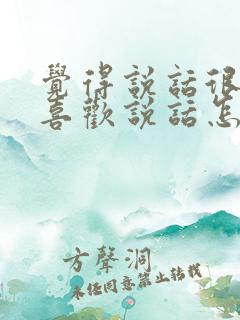 覺得說話很
喜歡說話怎
方聲洞
未經同意禁止轉載